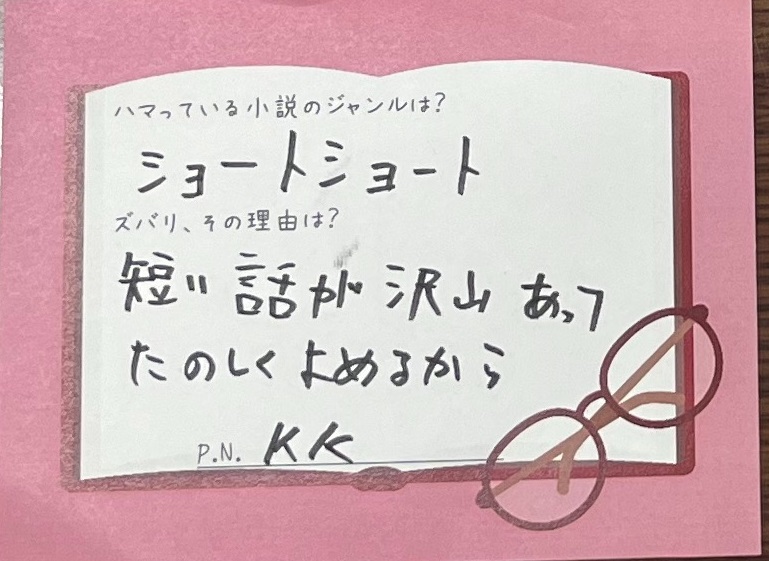 ハマっている小説のジャンルは?
ショートショート
ズバリ、その理由は?
短い話が沢山あって
たのしくよめるから
P.N. KK